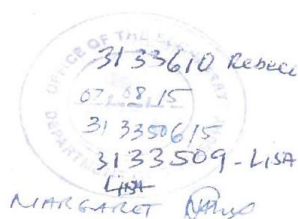 OFFICE OF THE
3133610 Rebecc
07 08 15
3133506/5
3133509 - LISA
LISA
MARGARET